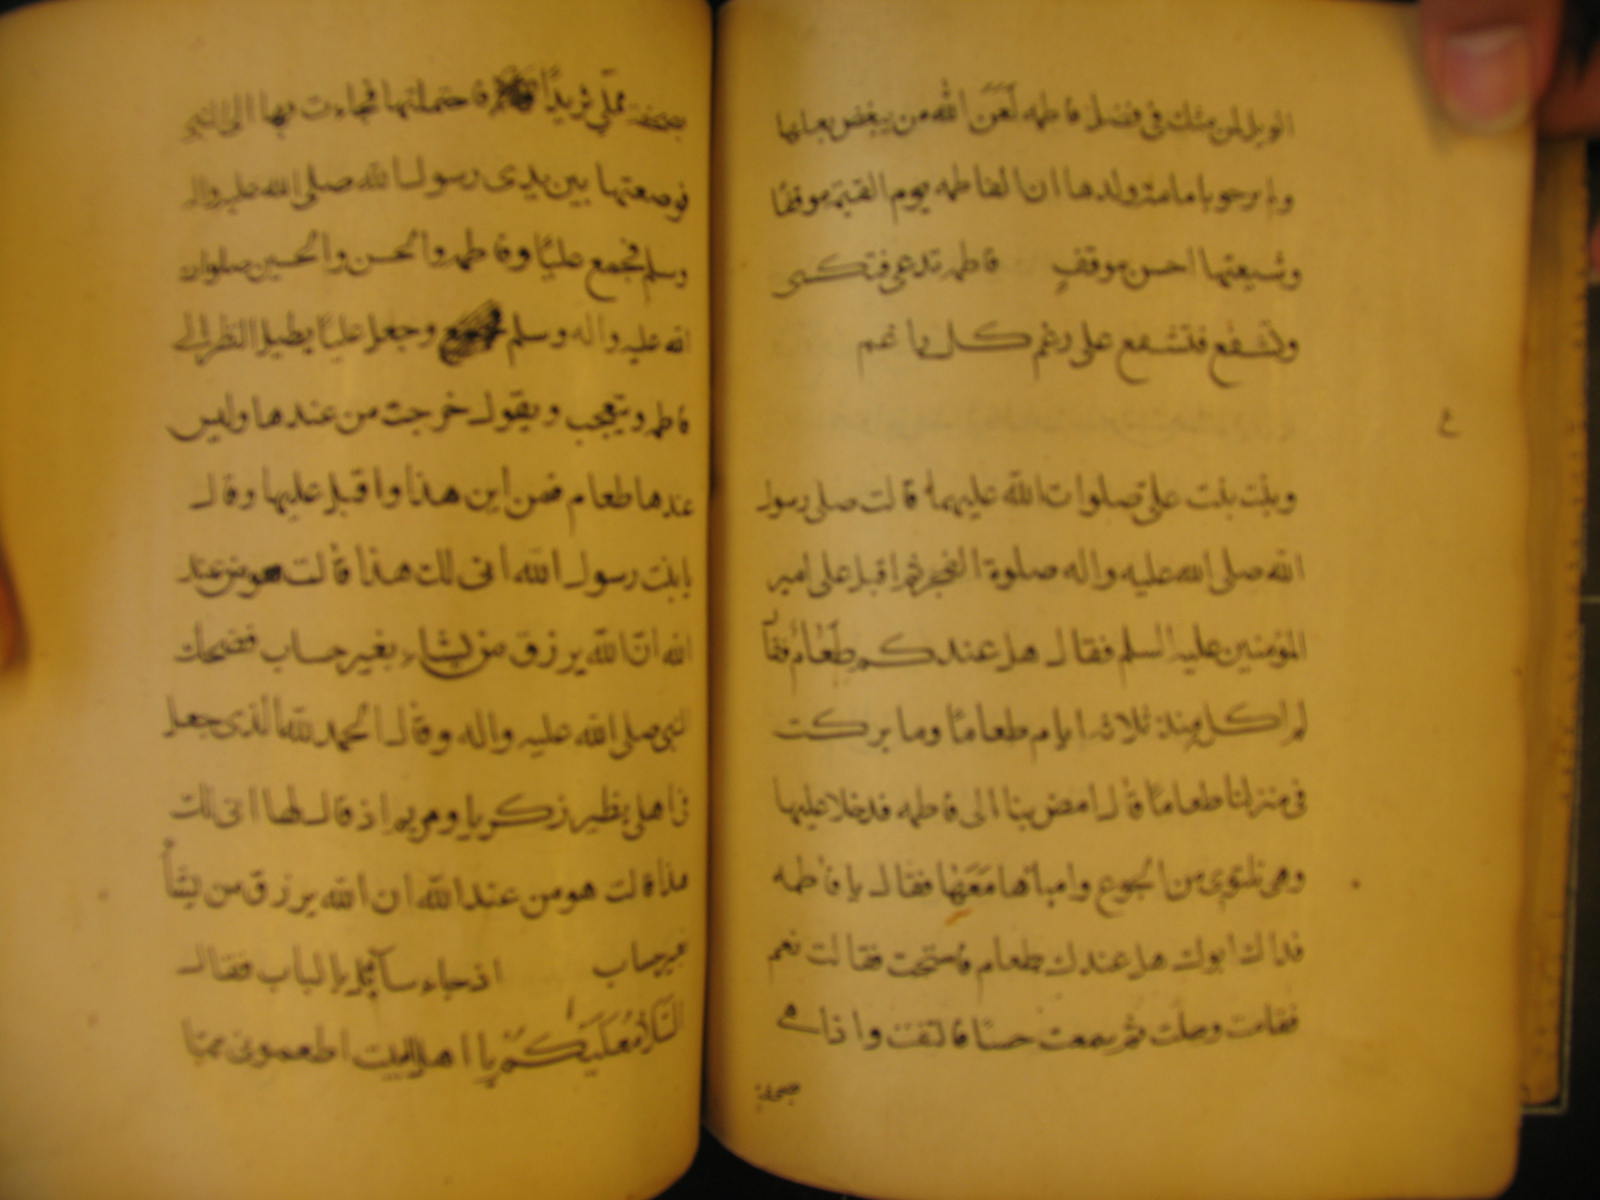 الويل لمن يشك في فضل فاطمه لَعَنَ الله من يبغض بعلها
ولم يرض باماميه ولدها ان لفاطمه يوم القيمة موقفا
وشيعتها احسن موقفٍ فاطمه تدعى فتكسى
وتشفع فتشفع على رغم كل راغم
وبنت بنت علي صلوات الله عليهما قالت صلى رسول
الله صلى الله عليه واله صلوة الفجر ثم اقبل على امير
المؤمنين عليه السلم فقال هل عندكم طَعَامُ فقا
لم اكل منذ ثلاثه ايام طعامًا وما بركت
في منزلنا طعامًا قال امض بنا الى فاطمه فدخلا عليها
وهي تلتوي من الجوع وابناها مَعَها فقال يا فاطمه
فداك ابوك هل عندك طعام فاستحيت فقالت نعم
فقامت وصلت ثم سمعت حسا فالتفتت واذا هي
بصحفة
بصحفة مملي ثريدًا فاحتملتها فجاءت بها الى النبي
فوضعتها بين يدى رسول الله صلى الله عليه واله
وسلم فجمع عليًا وفاطمه والحسن والحسين صلوات
الله عليه واله وسلم وجعل عليًا يطيل النظر الى
فاطمه ويتعجب ويقول خرجت من عندها وليس
عندها طعام فمن اين هذا واقبل عليها وقال
يا بنت رسول الله انى لك هذا قالت هو من عند
الله انّ الله يرزق من يشاء بغير حساب فضحك
النبي صلى الله عليه واله وقال الحمد لله الذى جعل
في اهلي نظير زكريا ومريم اذ قال لها انى لك
هذا قالت هو من عند الله ان الله يرزق من يشأ
بغير حساب اذ جاء سآئل بالباب فقال
السَّلَامُ عَلَيْكُمْ يا اهل البيت اطعموني مما